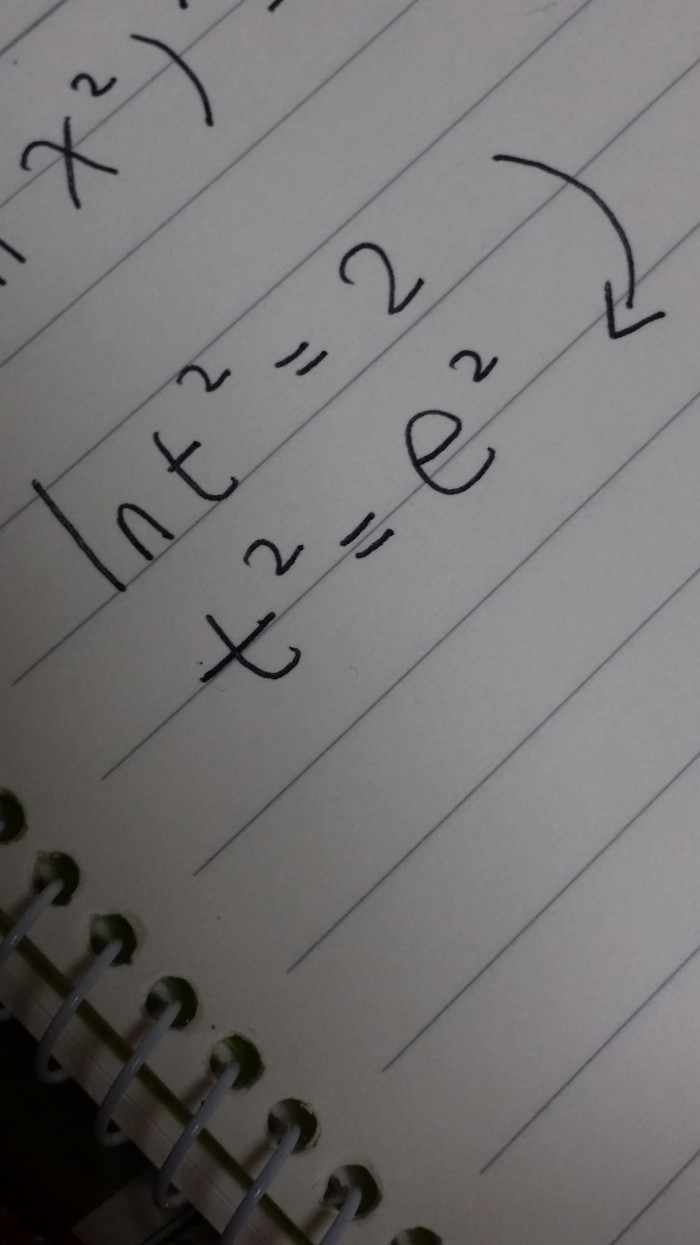 x²)
ln t² = 2
t² = e²